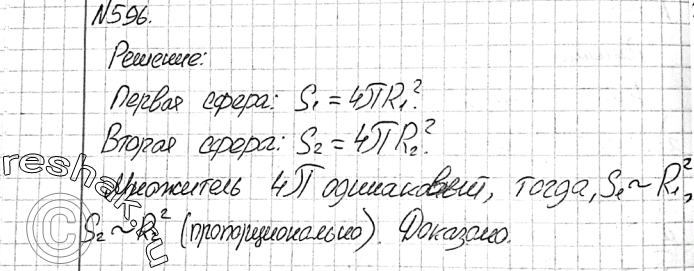 №596.
Решение:
Первая сфера: S₁ = 4πR₁².
Вторая сфера: S₂ = 4πR₂².
Множитель 4π одинаковый, тогда, S₁ ~ R₁²,
S₂ ~ R₂² (пропорционально). Доказано.
reshak.ru
©